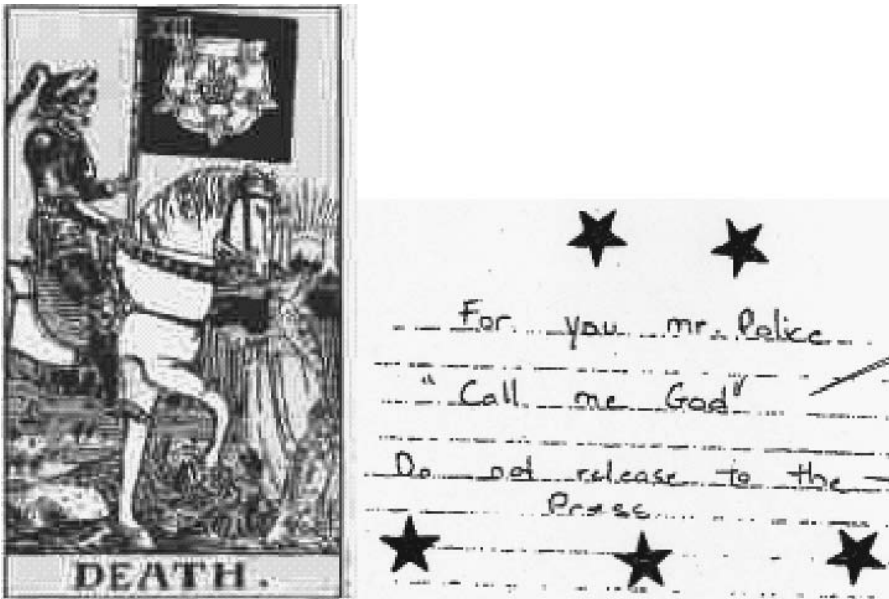 DEATH.
For you mr. Police
"Call me God"
Do not release to the
Press